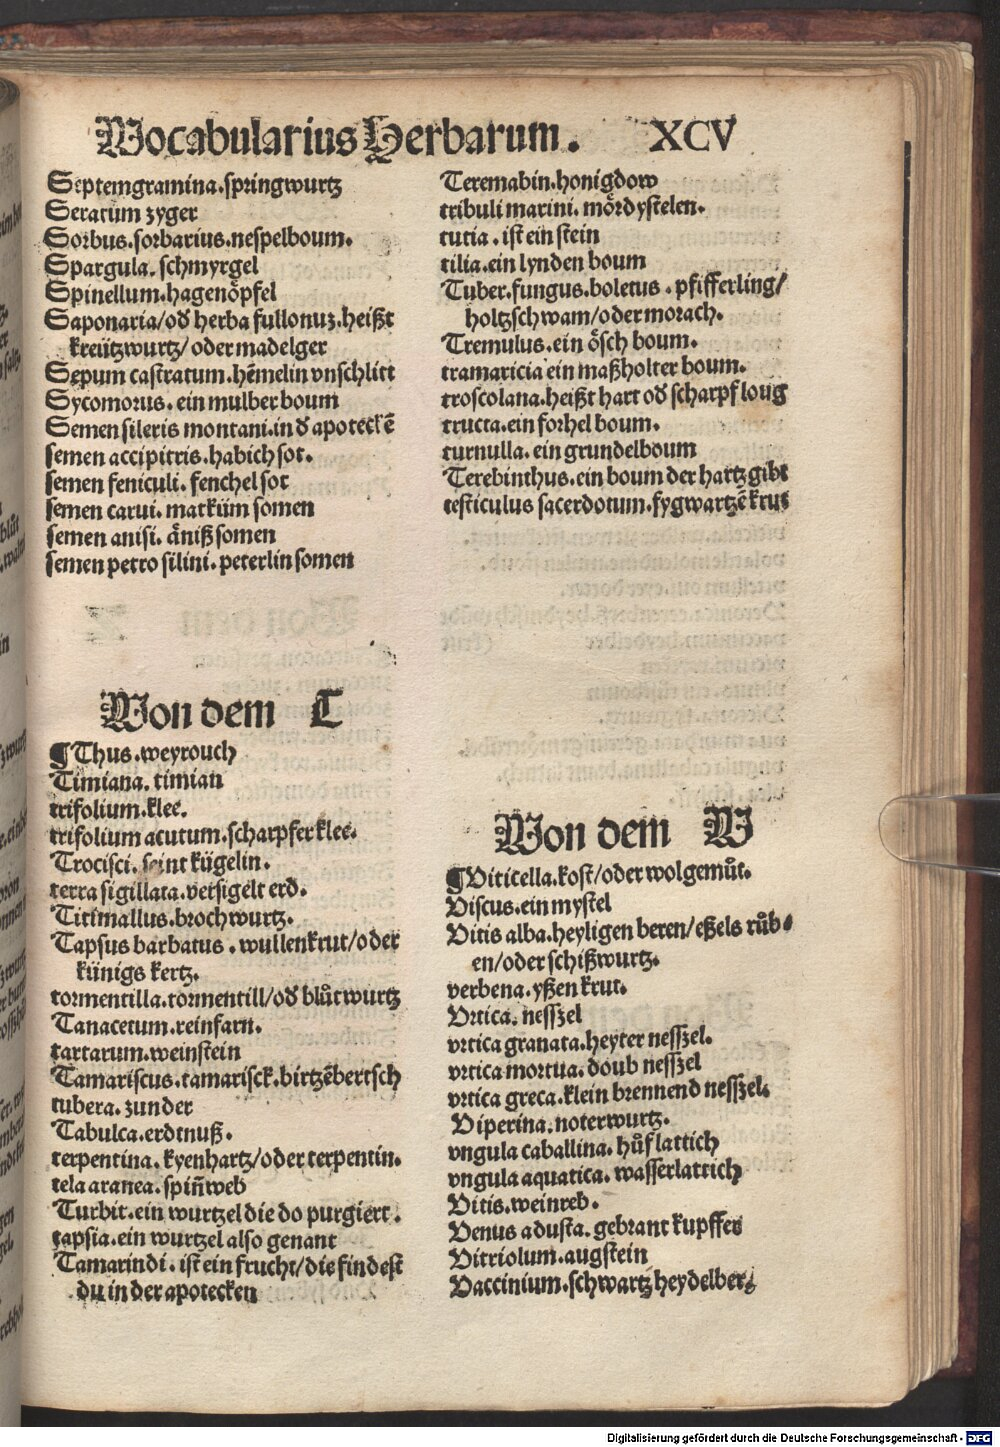 Vocabularius Herbarum. XCV
Septemgramina.springwurtz
Seratum zyger
Sorbus.sorbarius.nespelboum.
Spargula.schmyrgel
Spinellum.hagenöpfel
Saponaria/od herba fullonuz.heißt
kreützwurtz/oder madelger
Sepum castratum.hēmelin vnschlitt
Sycomorus.ein mulber boum
Semen sileris montani.in d apoteckē
semen accipitris.habich sot.
semen feniculi.fenchel sot
semen carui.matküm somen
semen anisi.äniß somen
semen petro silini.peterlin somen
Von dem T
¶Thus.weyrouch
Timiana.timian
trifolium.klee.
trifolium acutum.scharpfer klee.
Trocisci.seint kügelin.
terra sigillata.versigelt erd.
Titimallus.brochwurtz.
Tapsus barbatus.wullenkrut/oder
künigs kertz.
tormentilla.tormentill/od blůtwurtz
Tanacetum.reinfarn.
tartarum.weinstein
Tamariscus.tamarisck.birtzēbertsch
tubera.zunder
Tabulca.erdtnuß.
terpentina.kyenhartz/oder terpentin.
tela aranea.spiñweb
Turbit.ein wurtzel die do purgiert.
tapsia.ein wurtzel also genant
Tamarindi.ist ein frucht/die findest
du in der apotecken
Teremabin.honigdow
tribuli marini.mördystelen.
tutia.ist ein stein
tilia.ein lynden boum
Tuber.fungus.boletus.pfifferling/
holtzschwam/oder morach.
Tremulus.ein ösch boum.
tramaricia ein maßholter boum.
troscolana.heißt hart od scharpf loug
tructa.ein forhel boum.
turnulla.ein grundelboum
Terebinthus.ein boum der hartz gibt
testiculus sacerdotum.fygwartzē krut
Von dem V
¶Viticella.kost/oder wolgemůt.
Viscus.ein mystel
Vitis alba.heyligen beren/eßels růb-
en/oder schißwurtz.
verbena.yßen krut.
Vrtica.nesszel
vrtica granata.heyter nesszel.
vrtica mortua.doub nesszel
vrtica greca.klein brennend nesszel.
Viperina.noterwurtz.
vngula caballina.hůf lattich
vngula aquatica.wasserlattich
Vitis.weinreb.
Venus adusta.gebrant kupffer
Vitriolum.augstein
Vaccinium.schwartz heydelber
Digitalisierung gefördert durch die Deutsche Forschungsgemeinschaft - DFG